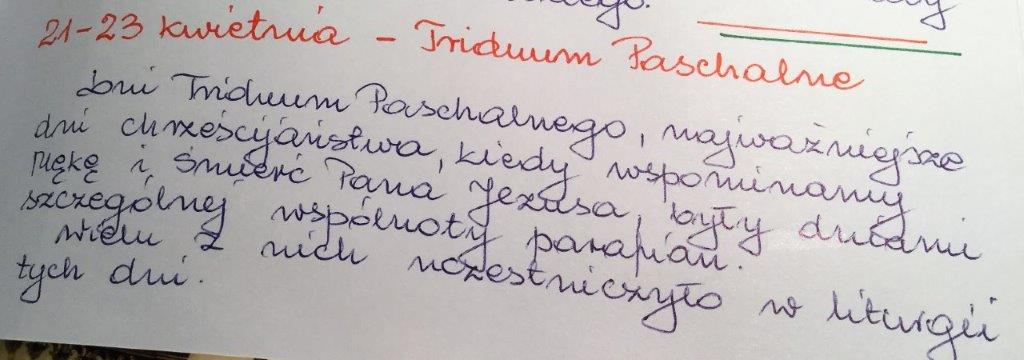 21-23 kwietnia - Triduum Paschalne
Dni Triduum Paschalnego, najważniejsze
dni chrześcijaństwa, kiedy wspominamy
mękę i śmierć Pana Jezusa, były dniami
szczególnej wspólnoty parafian.
Wielu z nich uczestniczyło w liturgii
tych dni.